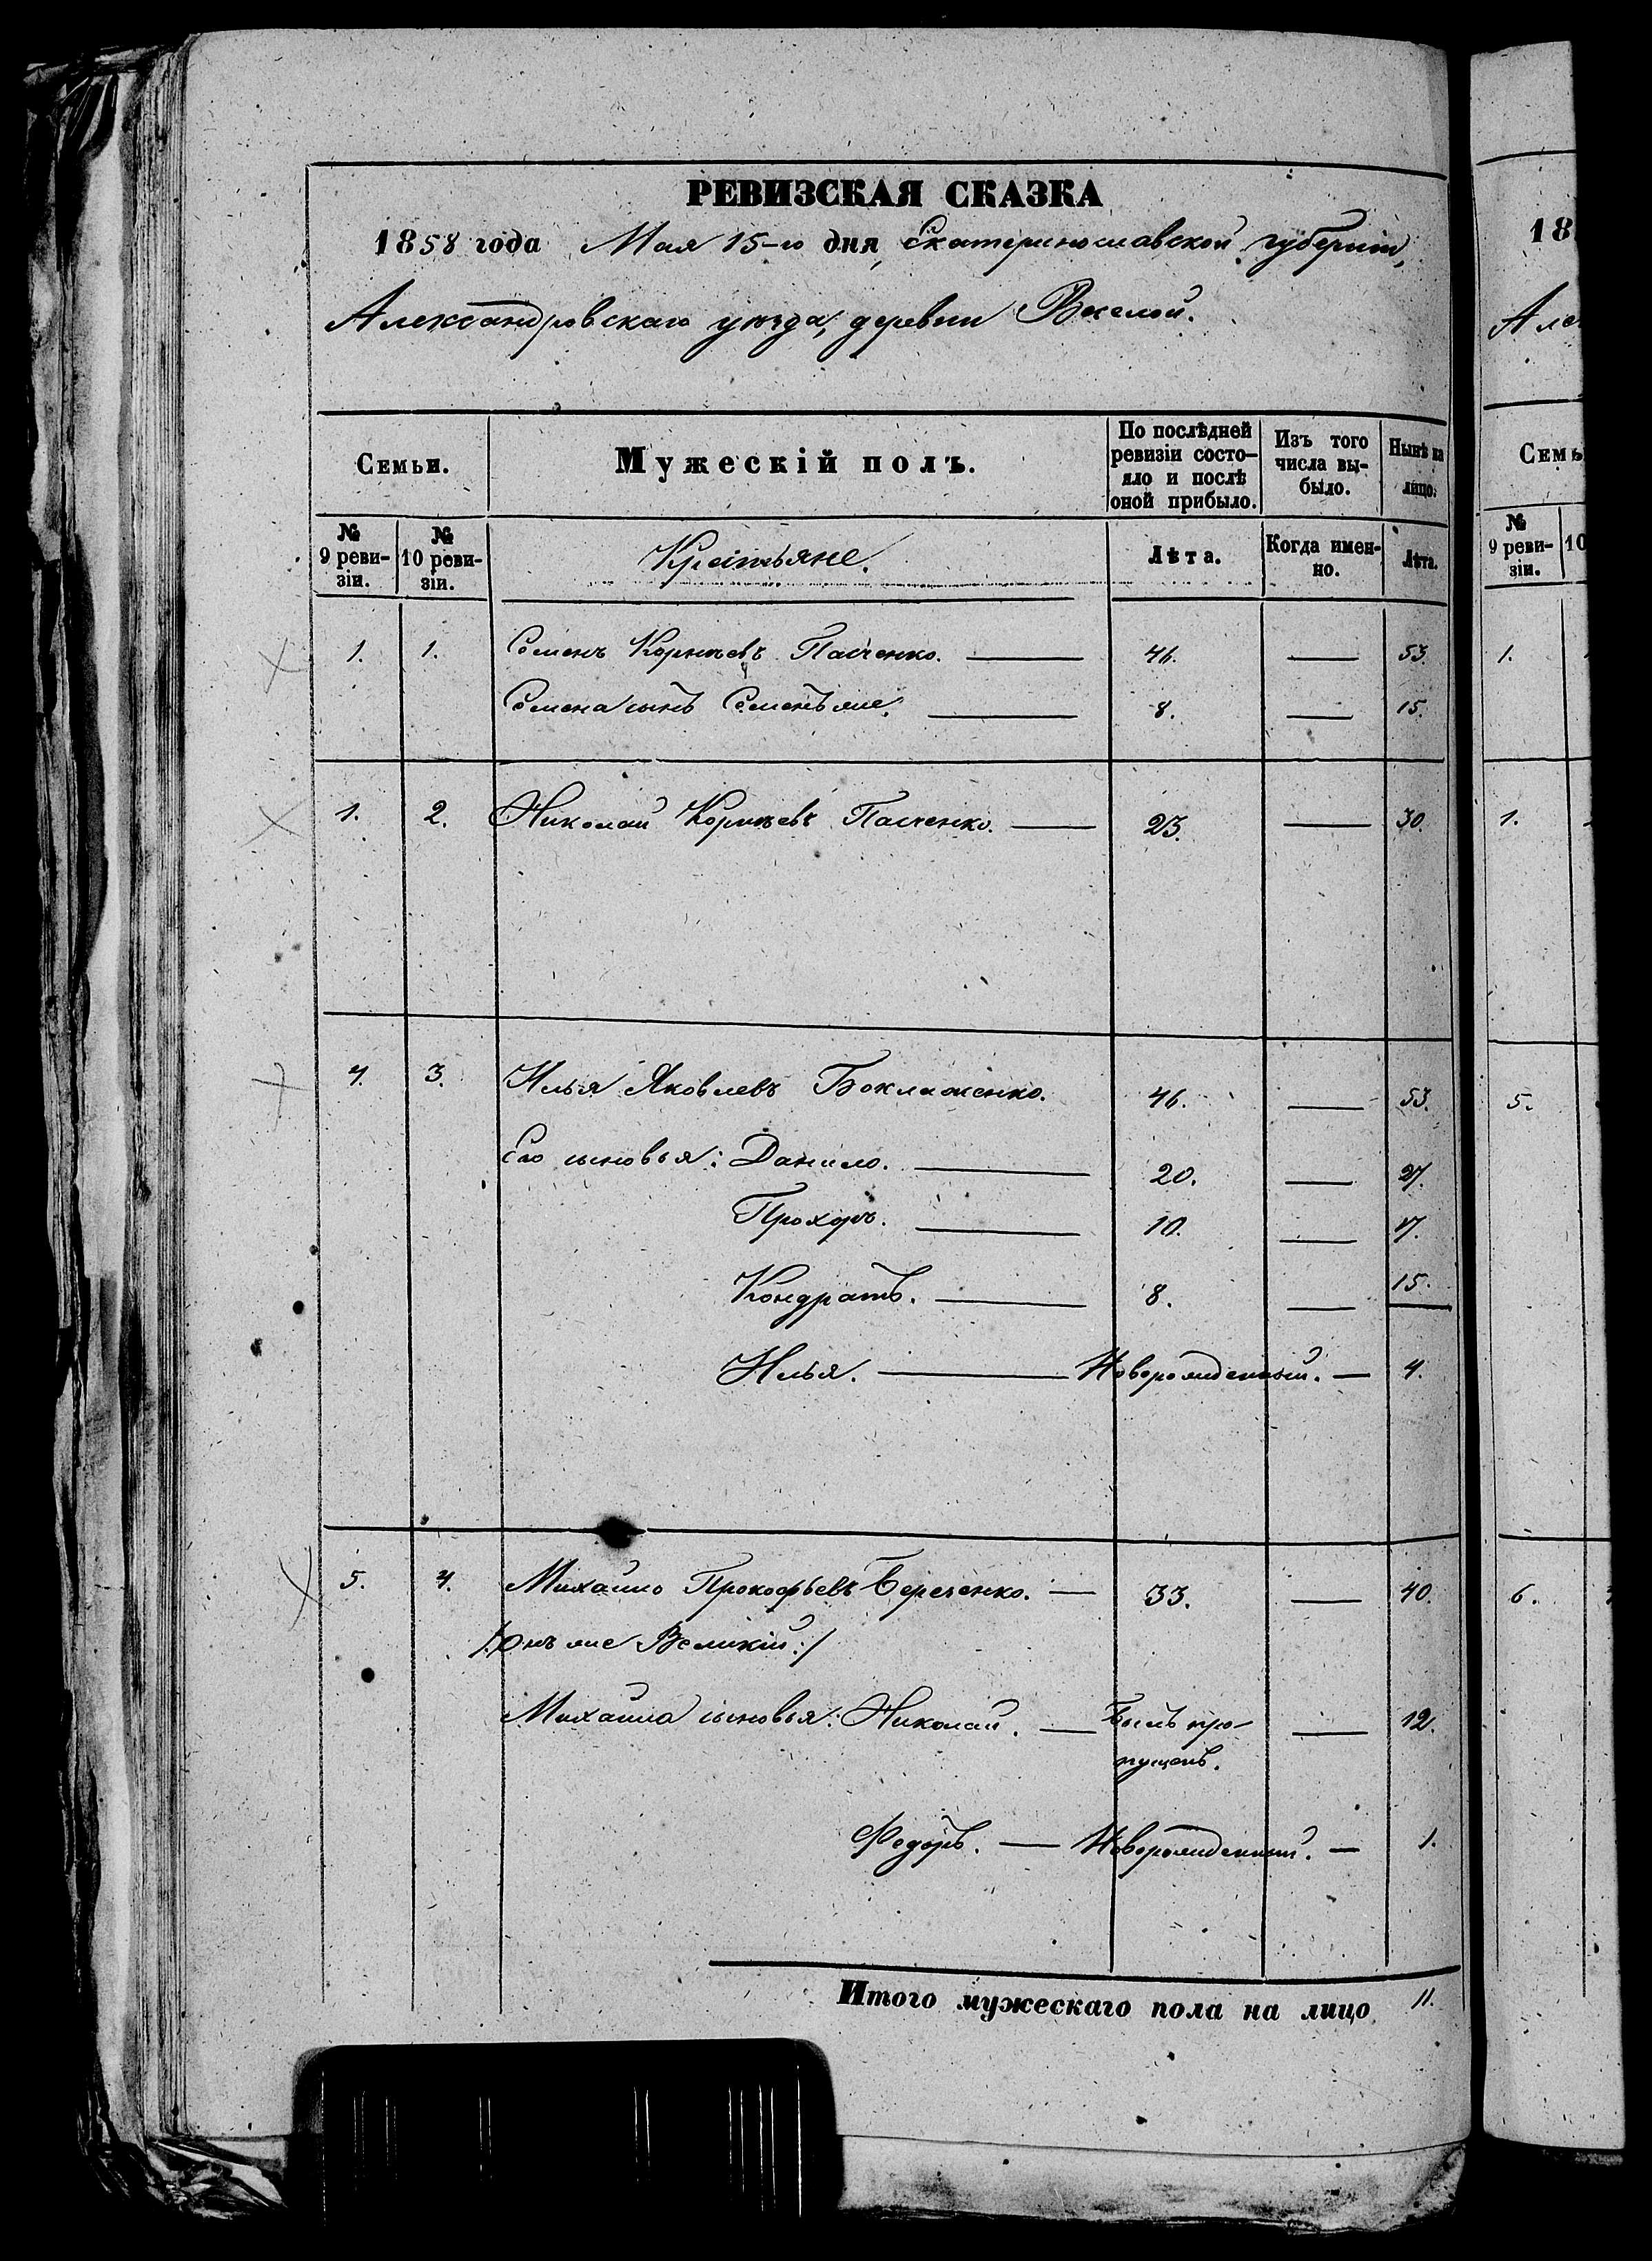 РЕВИЗСКАЯ СКАЗКА
1858 года Мая 15-го дня, Екатеринославской губерніи,
Александровскаго уѣзда, деревни Веселой.
Семьи.
Мужескій полъ.
По послѣдней ревизіи состояло и послѣ оной прибыло.
Изъ того числа выбыло.
Нынѣ на лицо.
№ 9 ревизіи.
№ 10 ревизіи.
Крестьяне.
Лѣта.
Когда именно.
Лѣта.
1. 1. Семенъ Корнѣевъ Пасченко. — 46. — 53.
Семена сынъ Семенъ же. — 8. — 15.
1. 2. Николай Корнѣевъ Пасченко. — 23. — 30.
4. 3. Илья Яковлевъ Бокламенко. 46. — 53.
Его сыновья: Данило. — 20. — 27.
Прохоръ. — 10. — 17.
Кондратъ. — 8. — 15.
Илья. — Новорожденный. — 4.
5. 4. Михайло Прокофьевъ Береченко. — 33. — 40.
/:Онъ же Великій:/
Михайла сыновья: Николай. — Былъ про- — 12.
пущенъ.
Федоръ. — Новорожденный. — 1.
Итого мужескаго пола на лицо 11.
18
Але
Семь
№ 9 ревизіи.
10
1.
1.
5.
6.